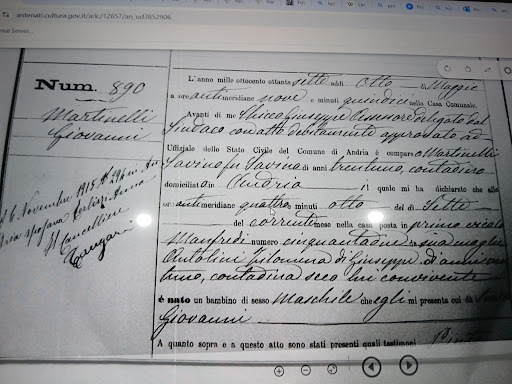 antenati.cultura.gov.it/ark:/12657/an_ud3852906
Num. 890
Martinelli
Giovanni
L'anno mille ottocento ottanta sette addì otto di Maggio
a ore anti meridiane nove e minuti quindici nella Casa Comunale.
Avanti di me Giuseppe Assessore delegato dal
Sindaco con atto debitamente approvato ad
Uffiziale dello Stato Civile del Comune di Andria è comparso Martinelli
Savino fu Savino di anni trentuno, contadino
domiciliato in Andria il quale mi ha dichiarato che alle
or anti meridiane quattro e minuti otto del dì sette
del corrente mese nella casa posta in primo vicolo
Manfredi numero cinquantadue da sua moglie
Antolini Filomena di Giuseppe di anni
tuno, contadina seco lui convivente
è nato un bambino di sesso Maschile che egli mi presenta cui dà
Giovanni
A quanto sopra e a questo atto sono stati presenti quali testimoni
6 Novembre 1915
sposava
Il Cancelliere